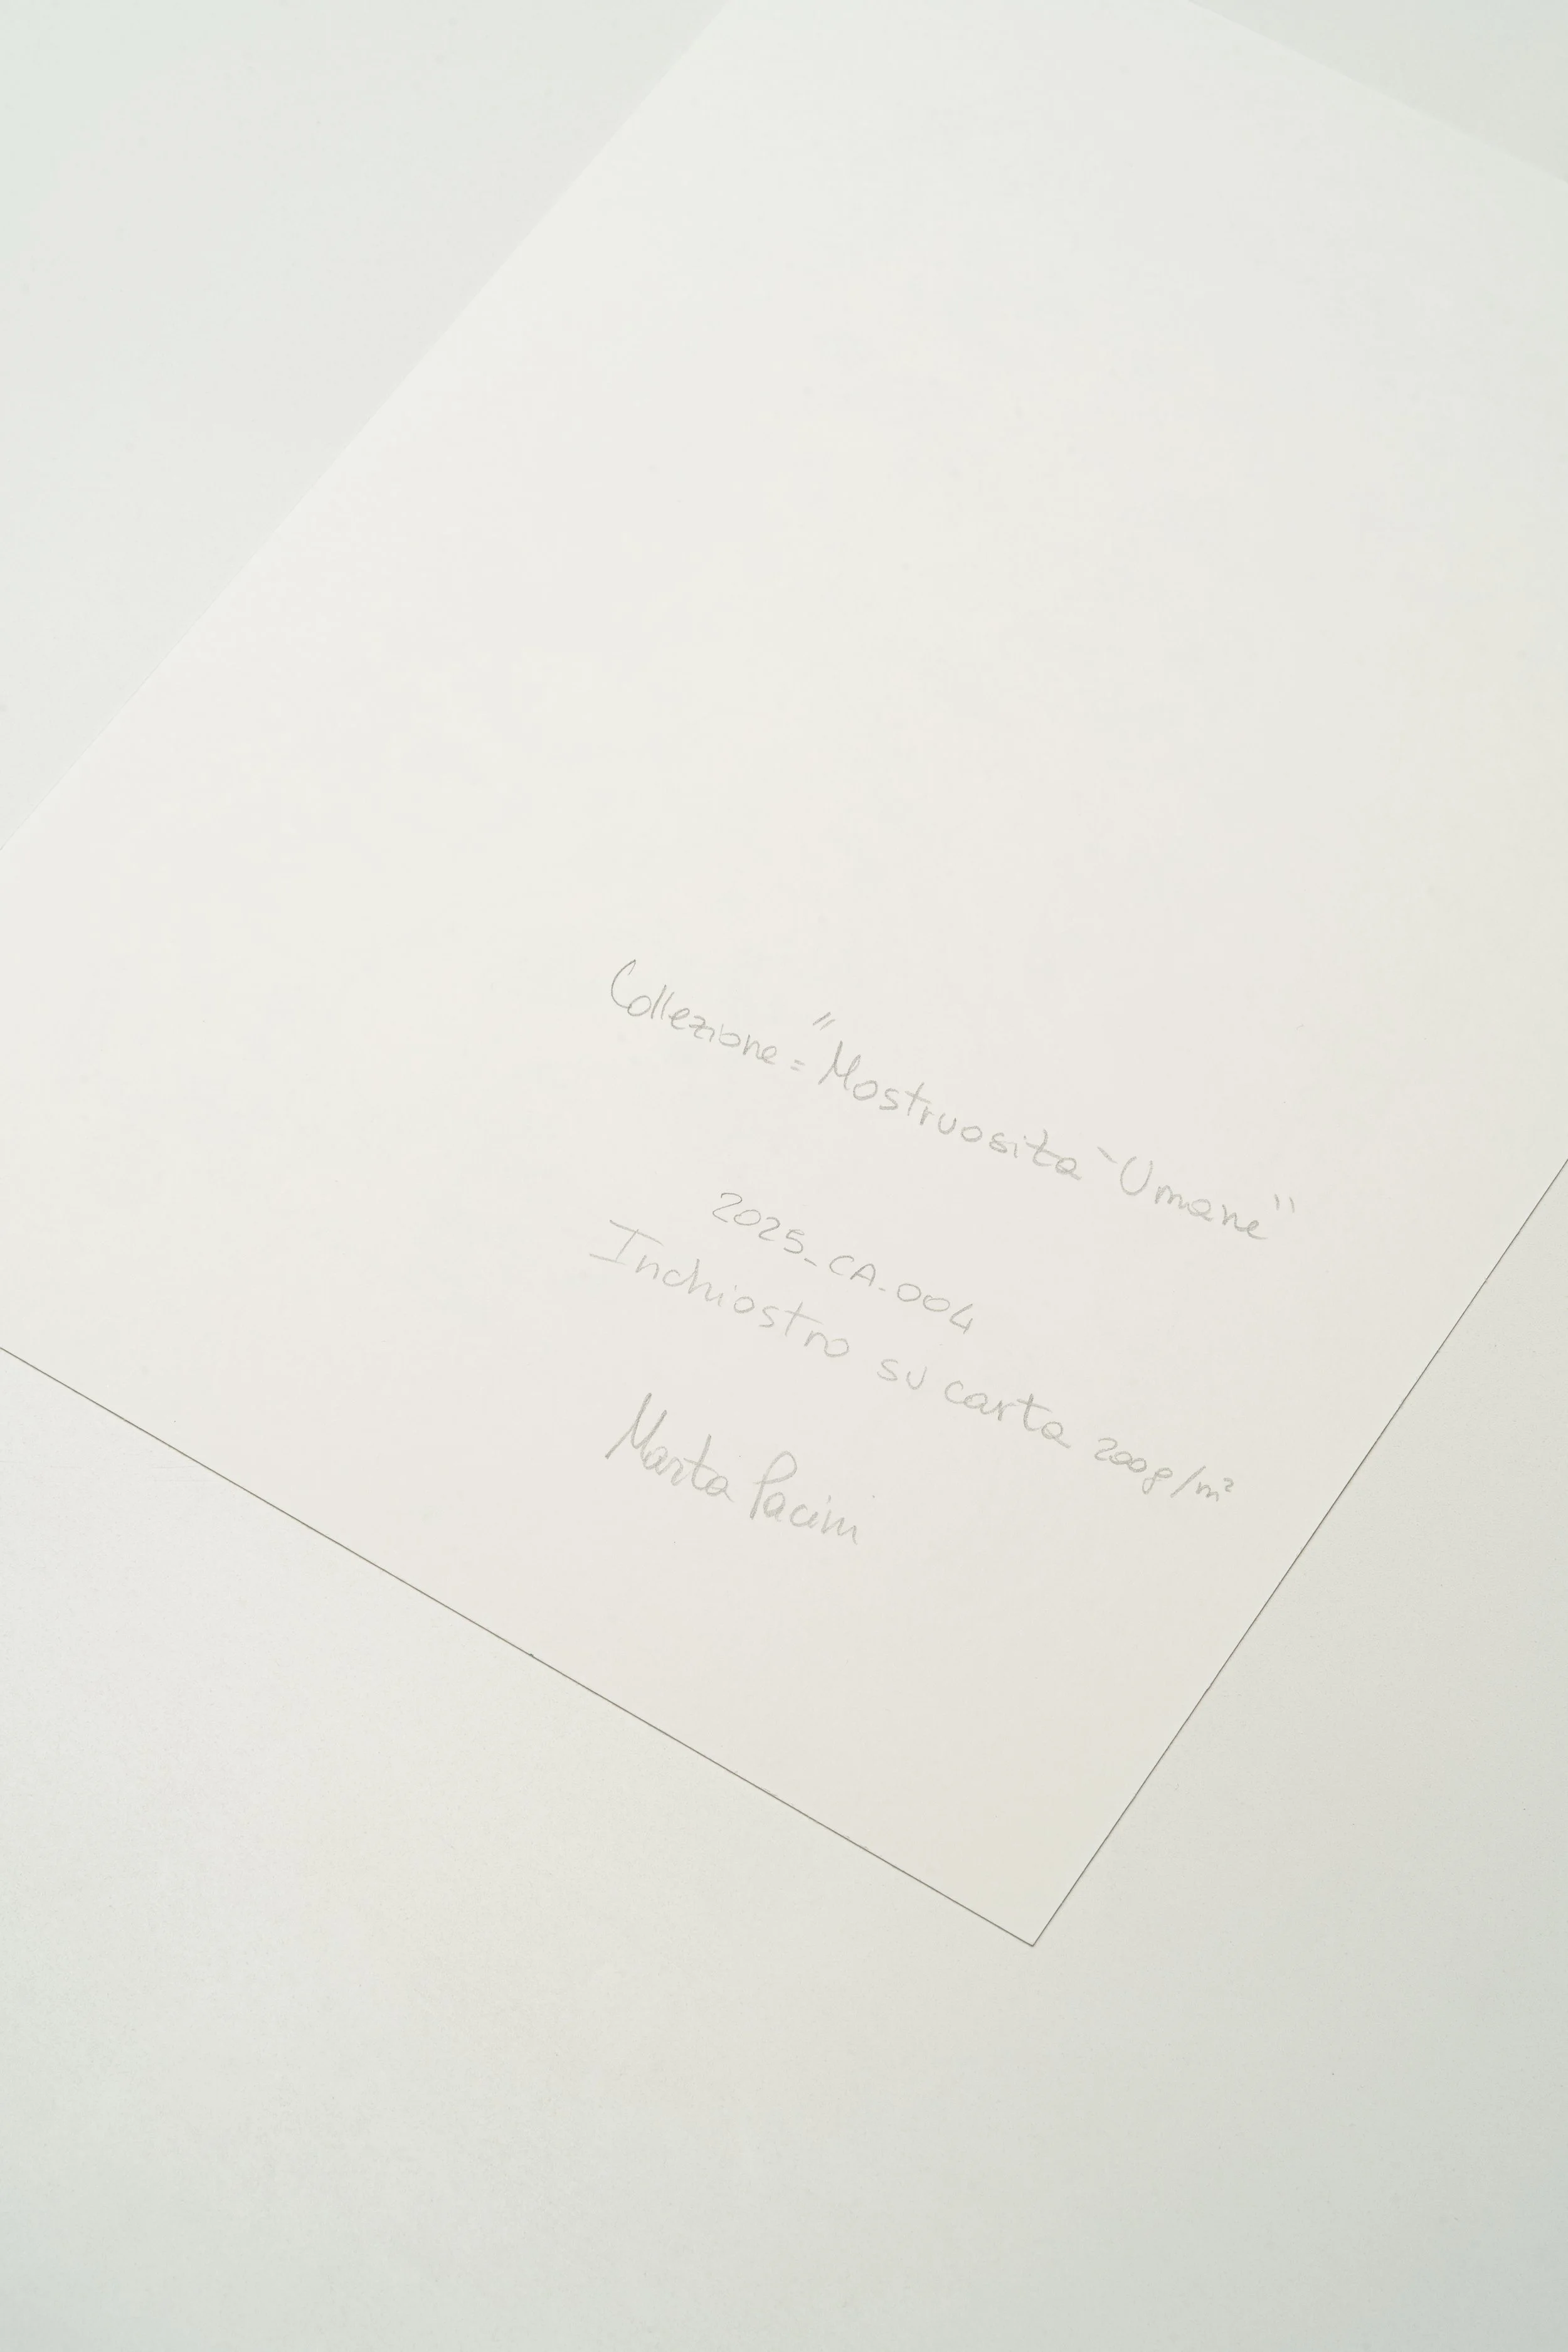 Collezione = "Mostruosità Umane"
2025_CA_004
Inchiostro su carta 200g/m²
Marta Pacini